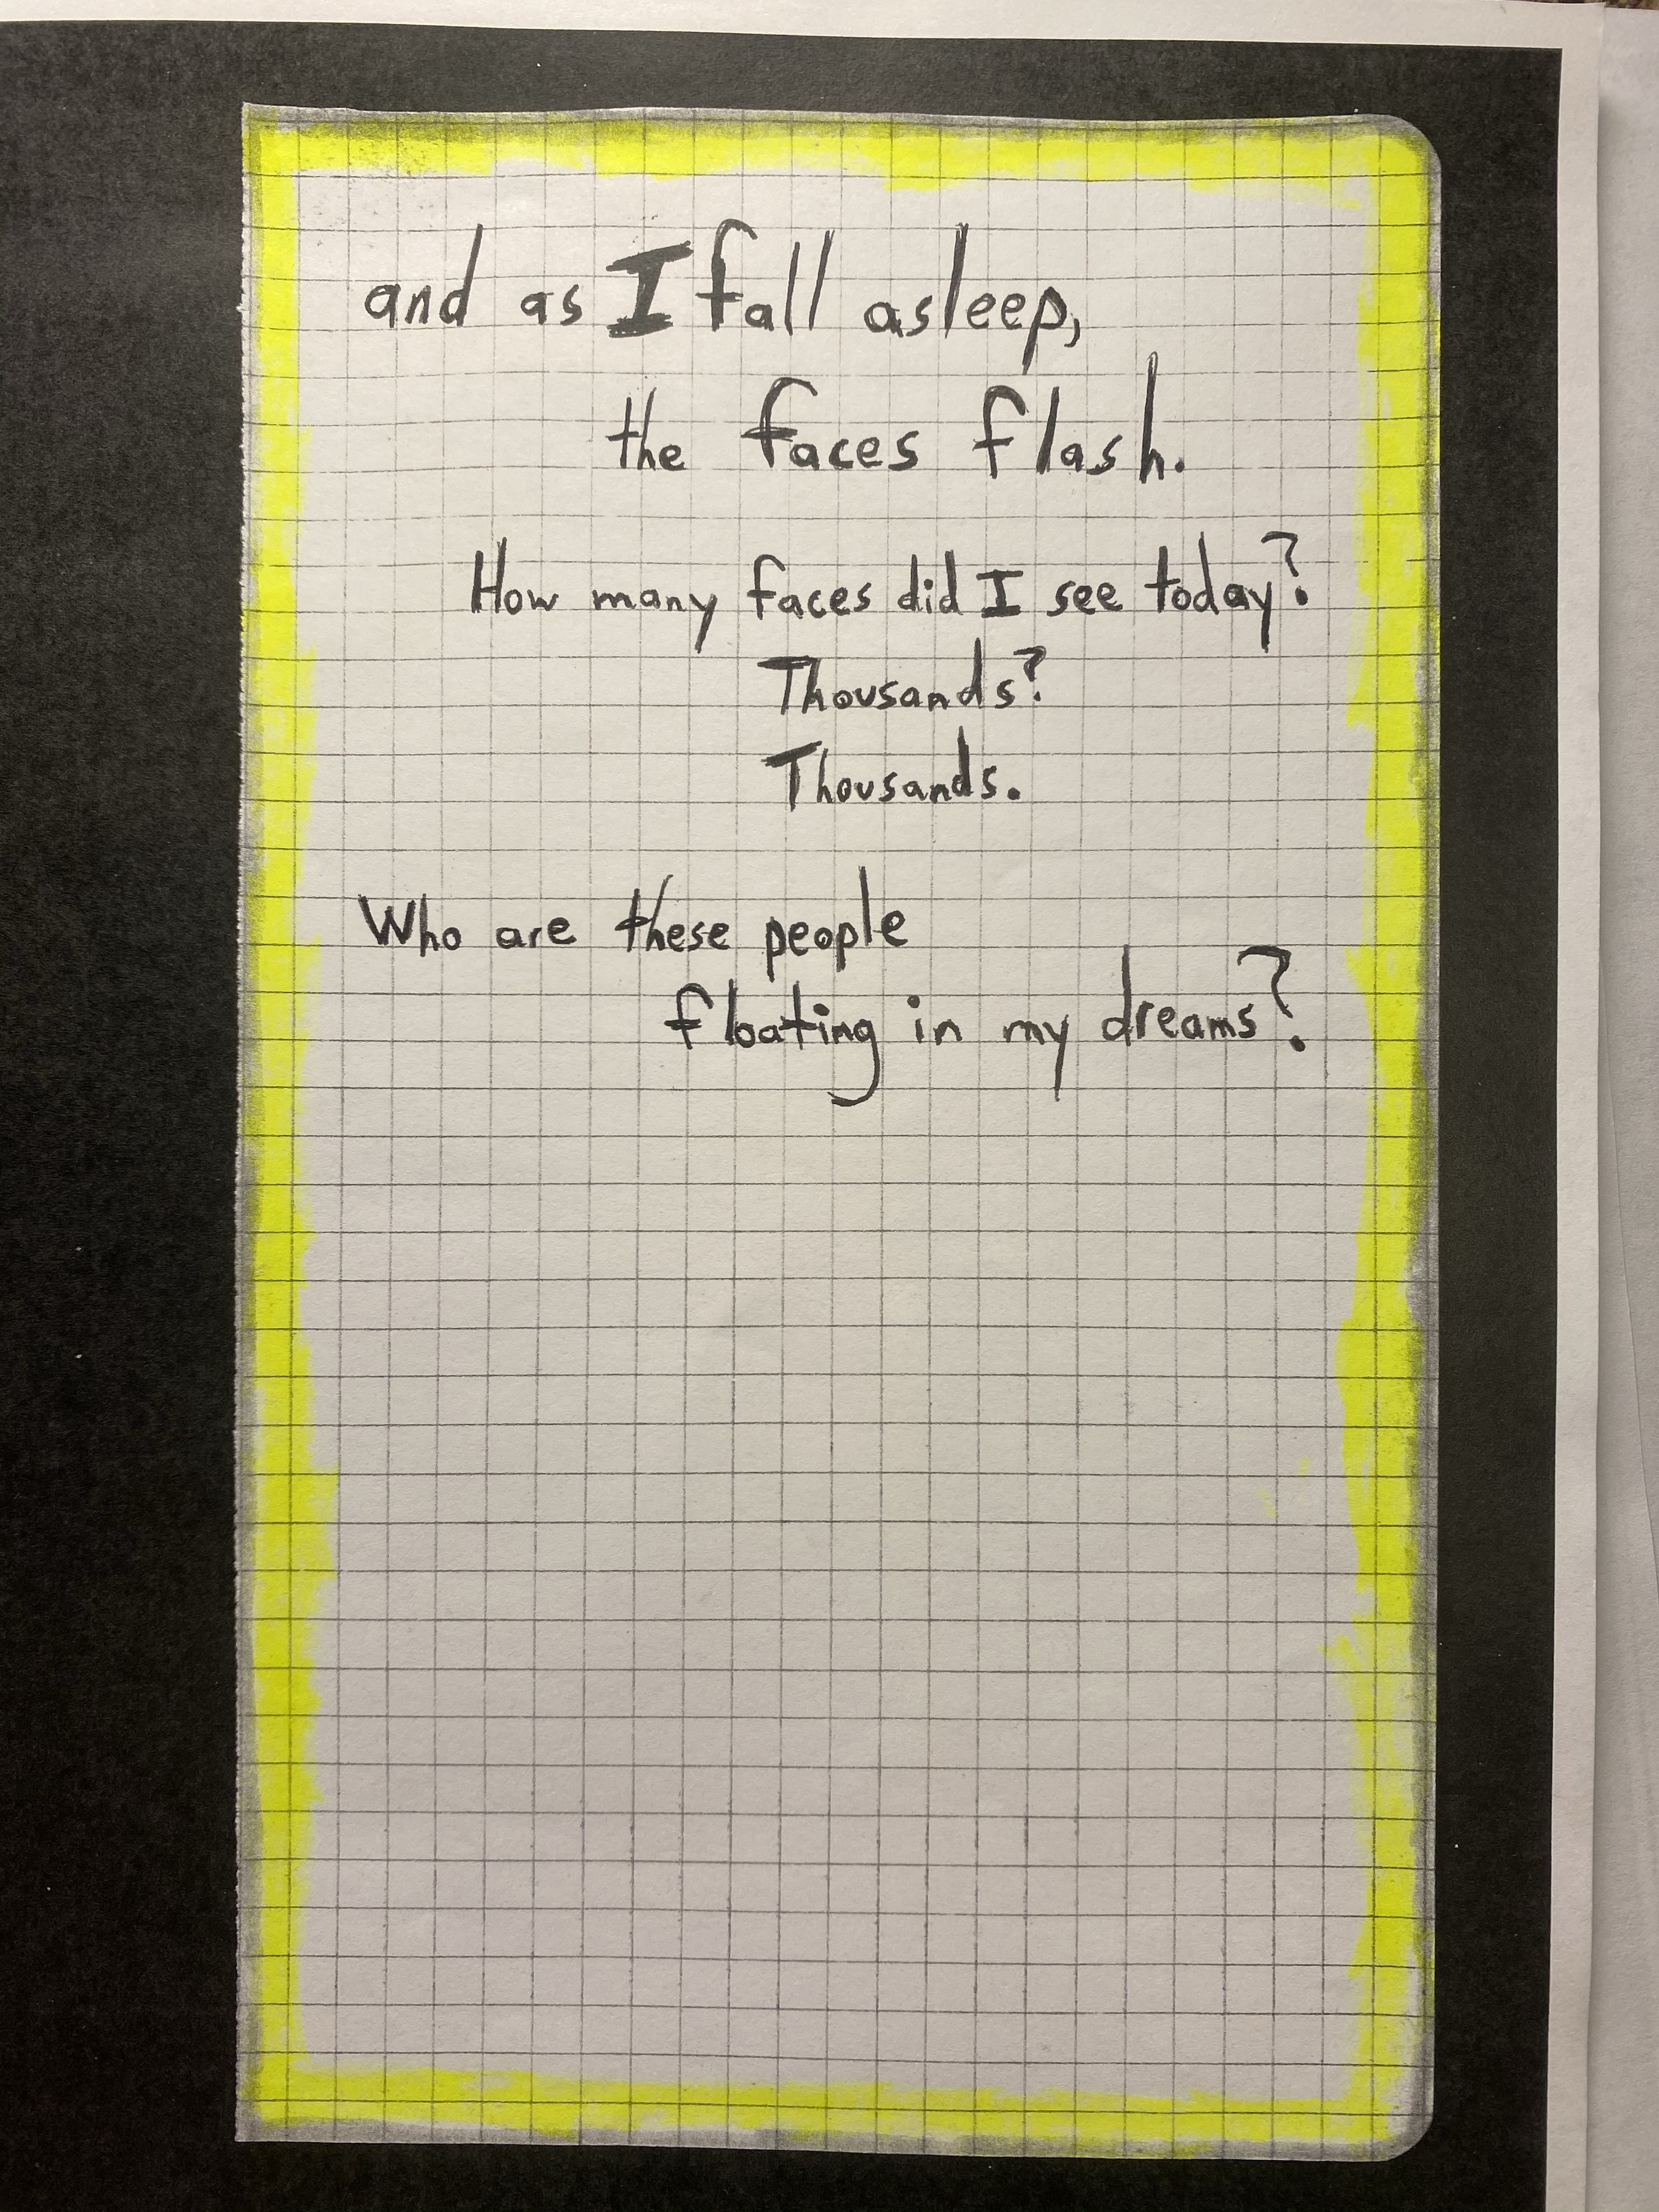 and as I fall asleep,
the faces flash.
How many faces did I see today?
Thousands?
Thousands.
Who are these people
floating in my dreams?